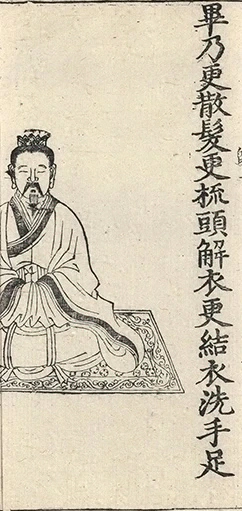 畢乃更散髮更梳頭解衣更結衣洗手足